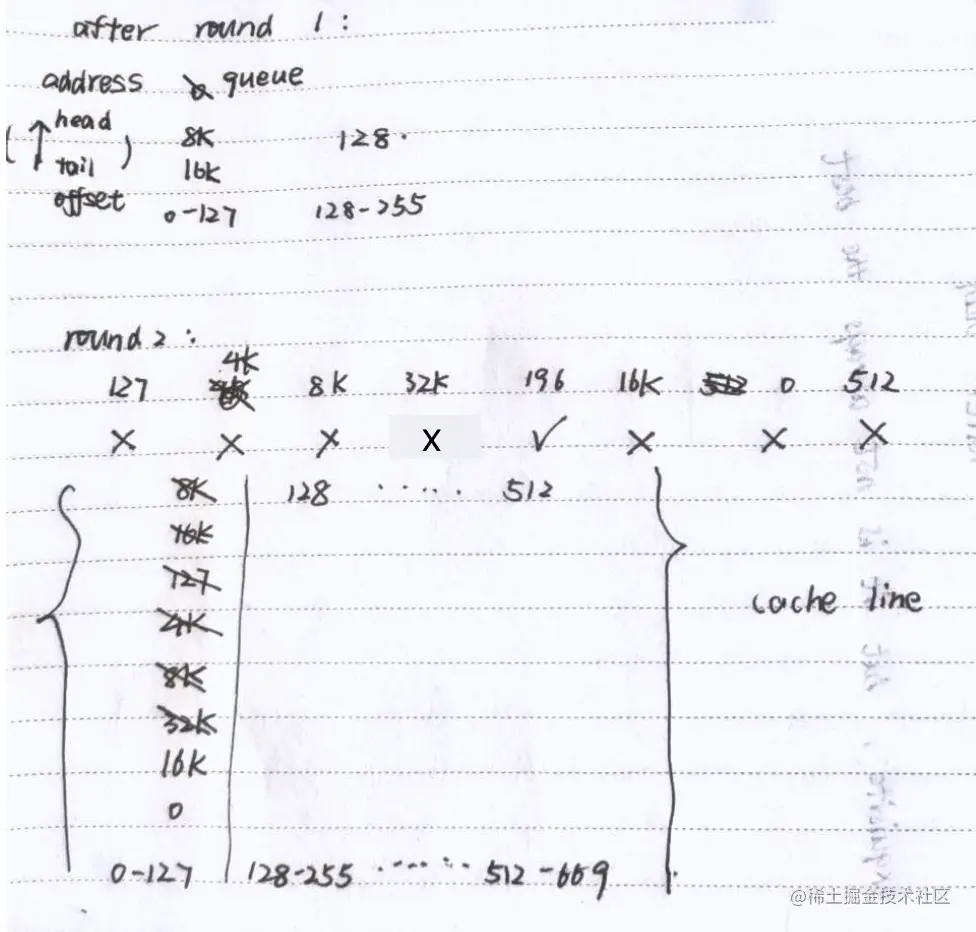 after round 1:
address queue
head 8K 128.
( ↑ )
tail 16K
offset 0-127 128-255
round 2:
127 4K 8K 32K 196 16K 512 0 512
× × × X ✓ × × ×
8K 128 ..... 512
16K
127
4K
8K
32K
16K
0
cache line
0-127 128-255 ...... 512-669
@稀土掘金技术社区